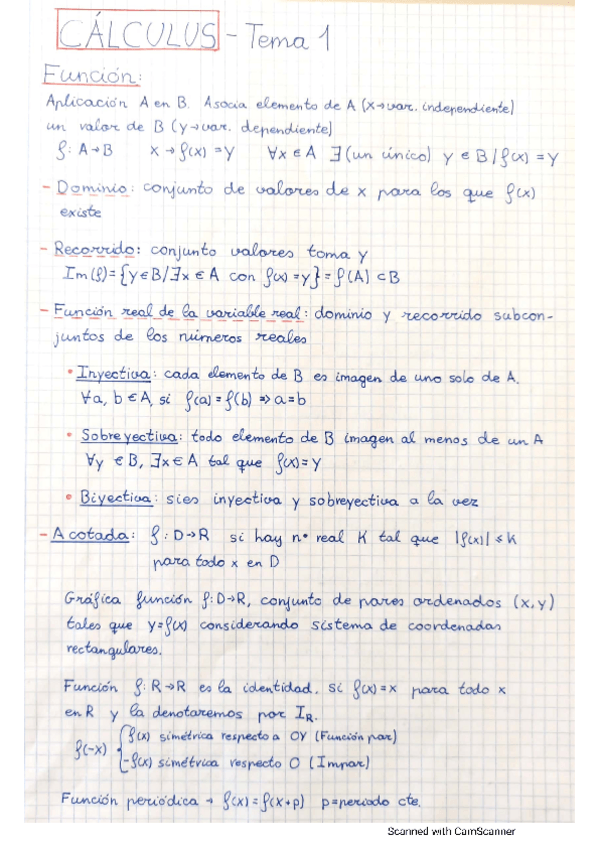 CÁLCULUS - Tema 1
Función:
Aplicación A en B. Asocia elemento de A (x→var. independiente)
un valor de B (y→var. dependiente)
f: A→B x→f(x) = y ∀x ∈ A ∃ (un único) y ∈ B / f(x) = y
- Dominio: conjunto de valores de x para los que f(x)
existe
- Recorrido: conjunto valores toma y
Im(f) = {y ∈ B / ∃x ∈ A con f(x) = y} = f(A) ⊂ B
- Función real de la variable real: dominio y recorrido subcon-
juntos de los números reales
• Inyectiva: cada elemento de B es imagen de uno solo de A.
∀a, b ∈ A, si f(a) = f(b) ⇒ a = b
• Sobreyectiva: todo elemento de B imagen al menos de un A
∀y ∈ B, ∃x ∈ A tal que f(x) = y
• Biyectiva: si es inyectiva y sobreyectiva a la vez
- Acotada: f: D→R si hay nº real K tal que |f(x)| ≤ K
para todo x en D
Gráfica función f: D→R, conjunto de pares ordenados (x, y)
tales que y = f(x) considerando sistema de coordenadas
rectangulares.
Función f: R→R es la identidad, si f(x) = x para todo x
en R y la denotaremos por I_R.
f(-x) { f(x) simétrica respecto a OY (Función par)
-f(x) simétrica respecto O (Impar)
Función periódica → f(x) = f(x+p) p = periodo cte.
Scanned with CamScanner